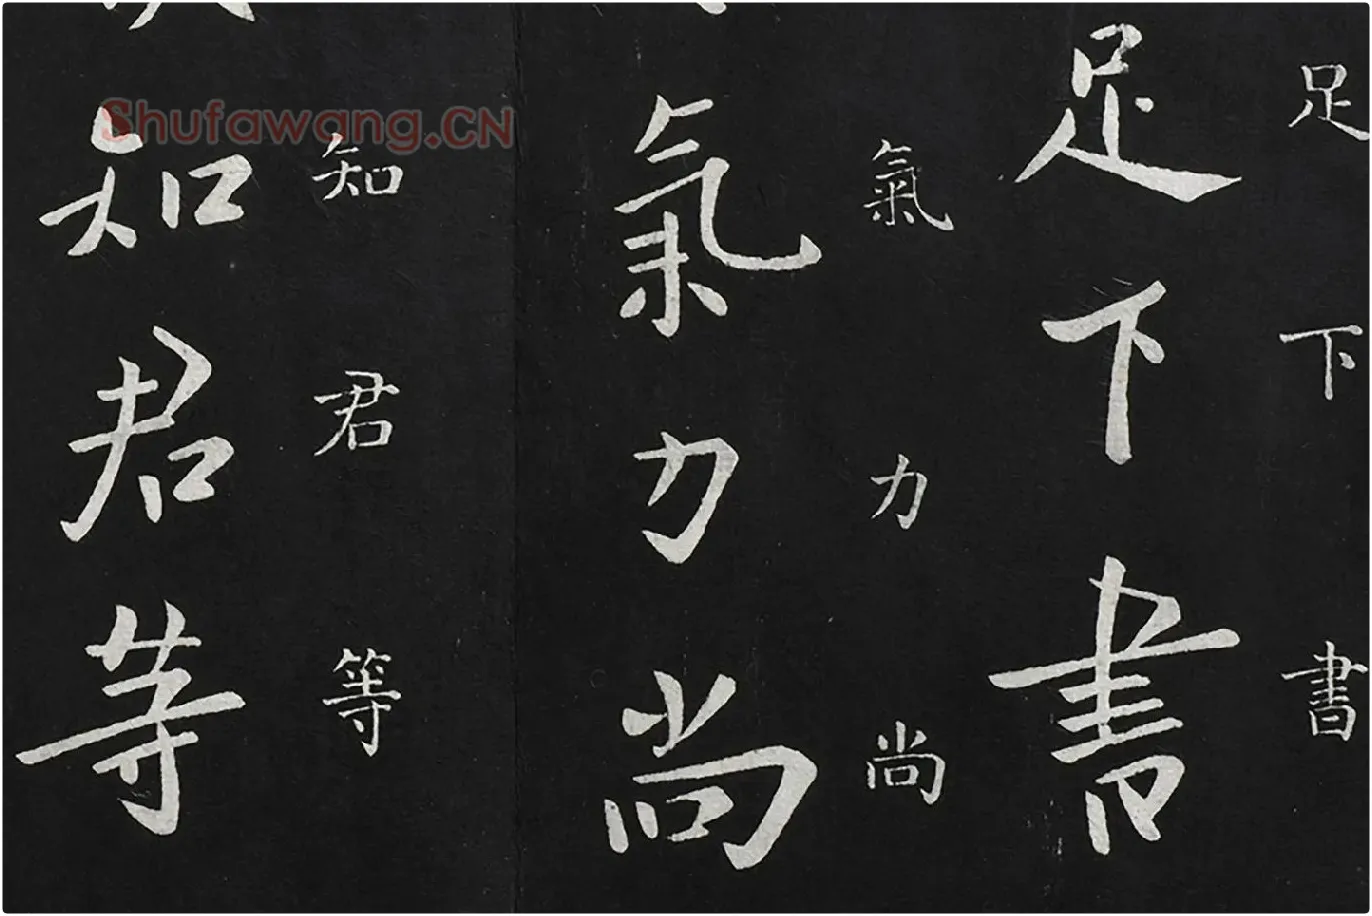 足下書
足下書
氣力尚
氣力尚
知君等
知君等
Shufawang.CN